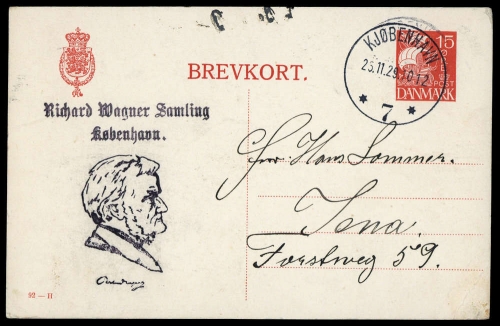 BREVKORT.
KJØBENHAVN
23.11.29.10-12
* 7 *
15
POST
DANMARK
Richard Wagner Samling
København.
Hans Sommer.
Jena.
Forstweg 59.
92 — H